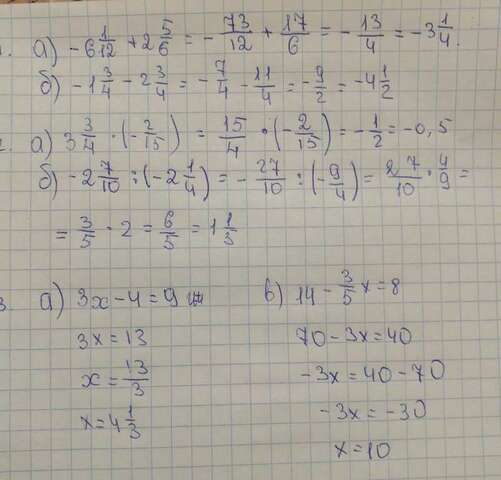 1. а) -6 1/12 + 2 5/6 = - 73/12 + 17/6 = - 13/4 = -3 1/4.
б) -1 3/4 - 2 3/4 = - 7/4 - 11/4 = - 9/2 = -4 1/2
2. а) 3 3/4 · (- 2/15) = 15/4 · (- 2/15) = - 1/2 = -0,5
б) -2 7/10 : (-2 1/4) = - 27/10 : (- 9/4) = 27/10 · 4/9 =
= 3/5 · 2 = 6/5 = 1 1/5
3. а) 3x - 4 = 9 в) 14 - 3/5 x = 8
3x = 13 70 - 3x = 40
x = 13/3 -3x = 40 - 70
x = 4 1/3 -3x = -30
x = 10